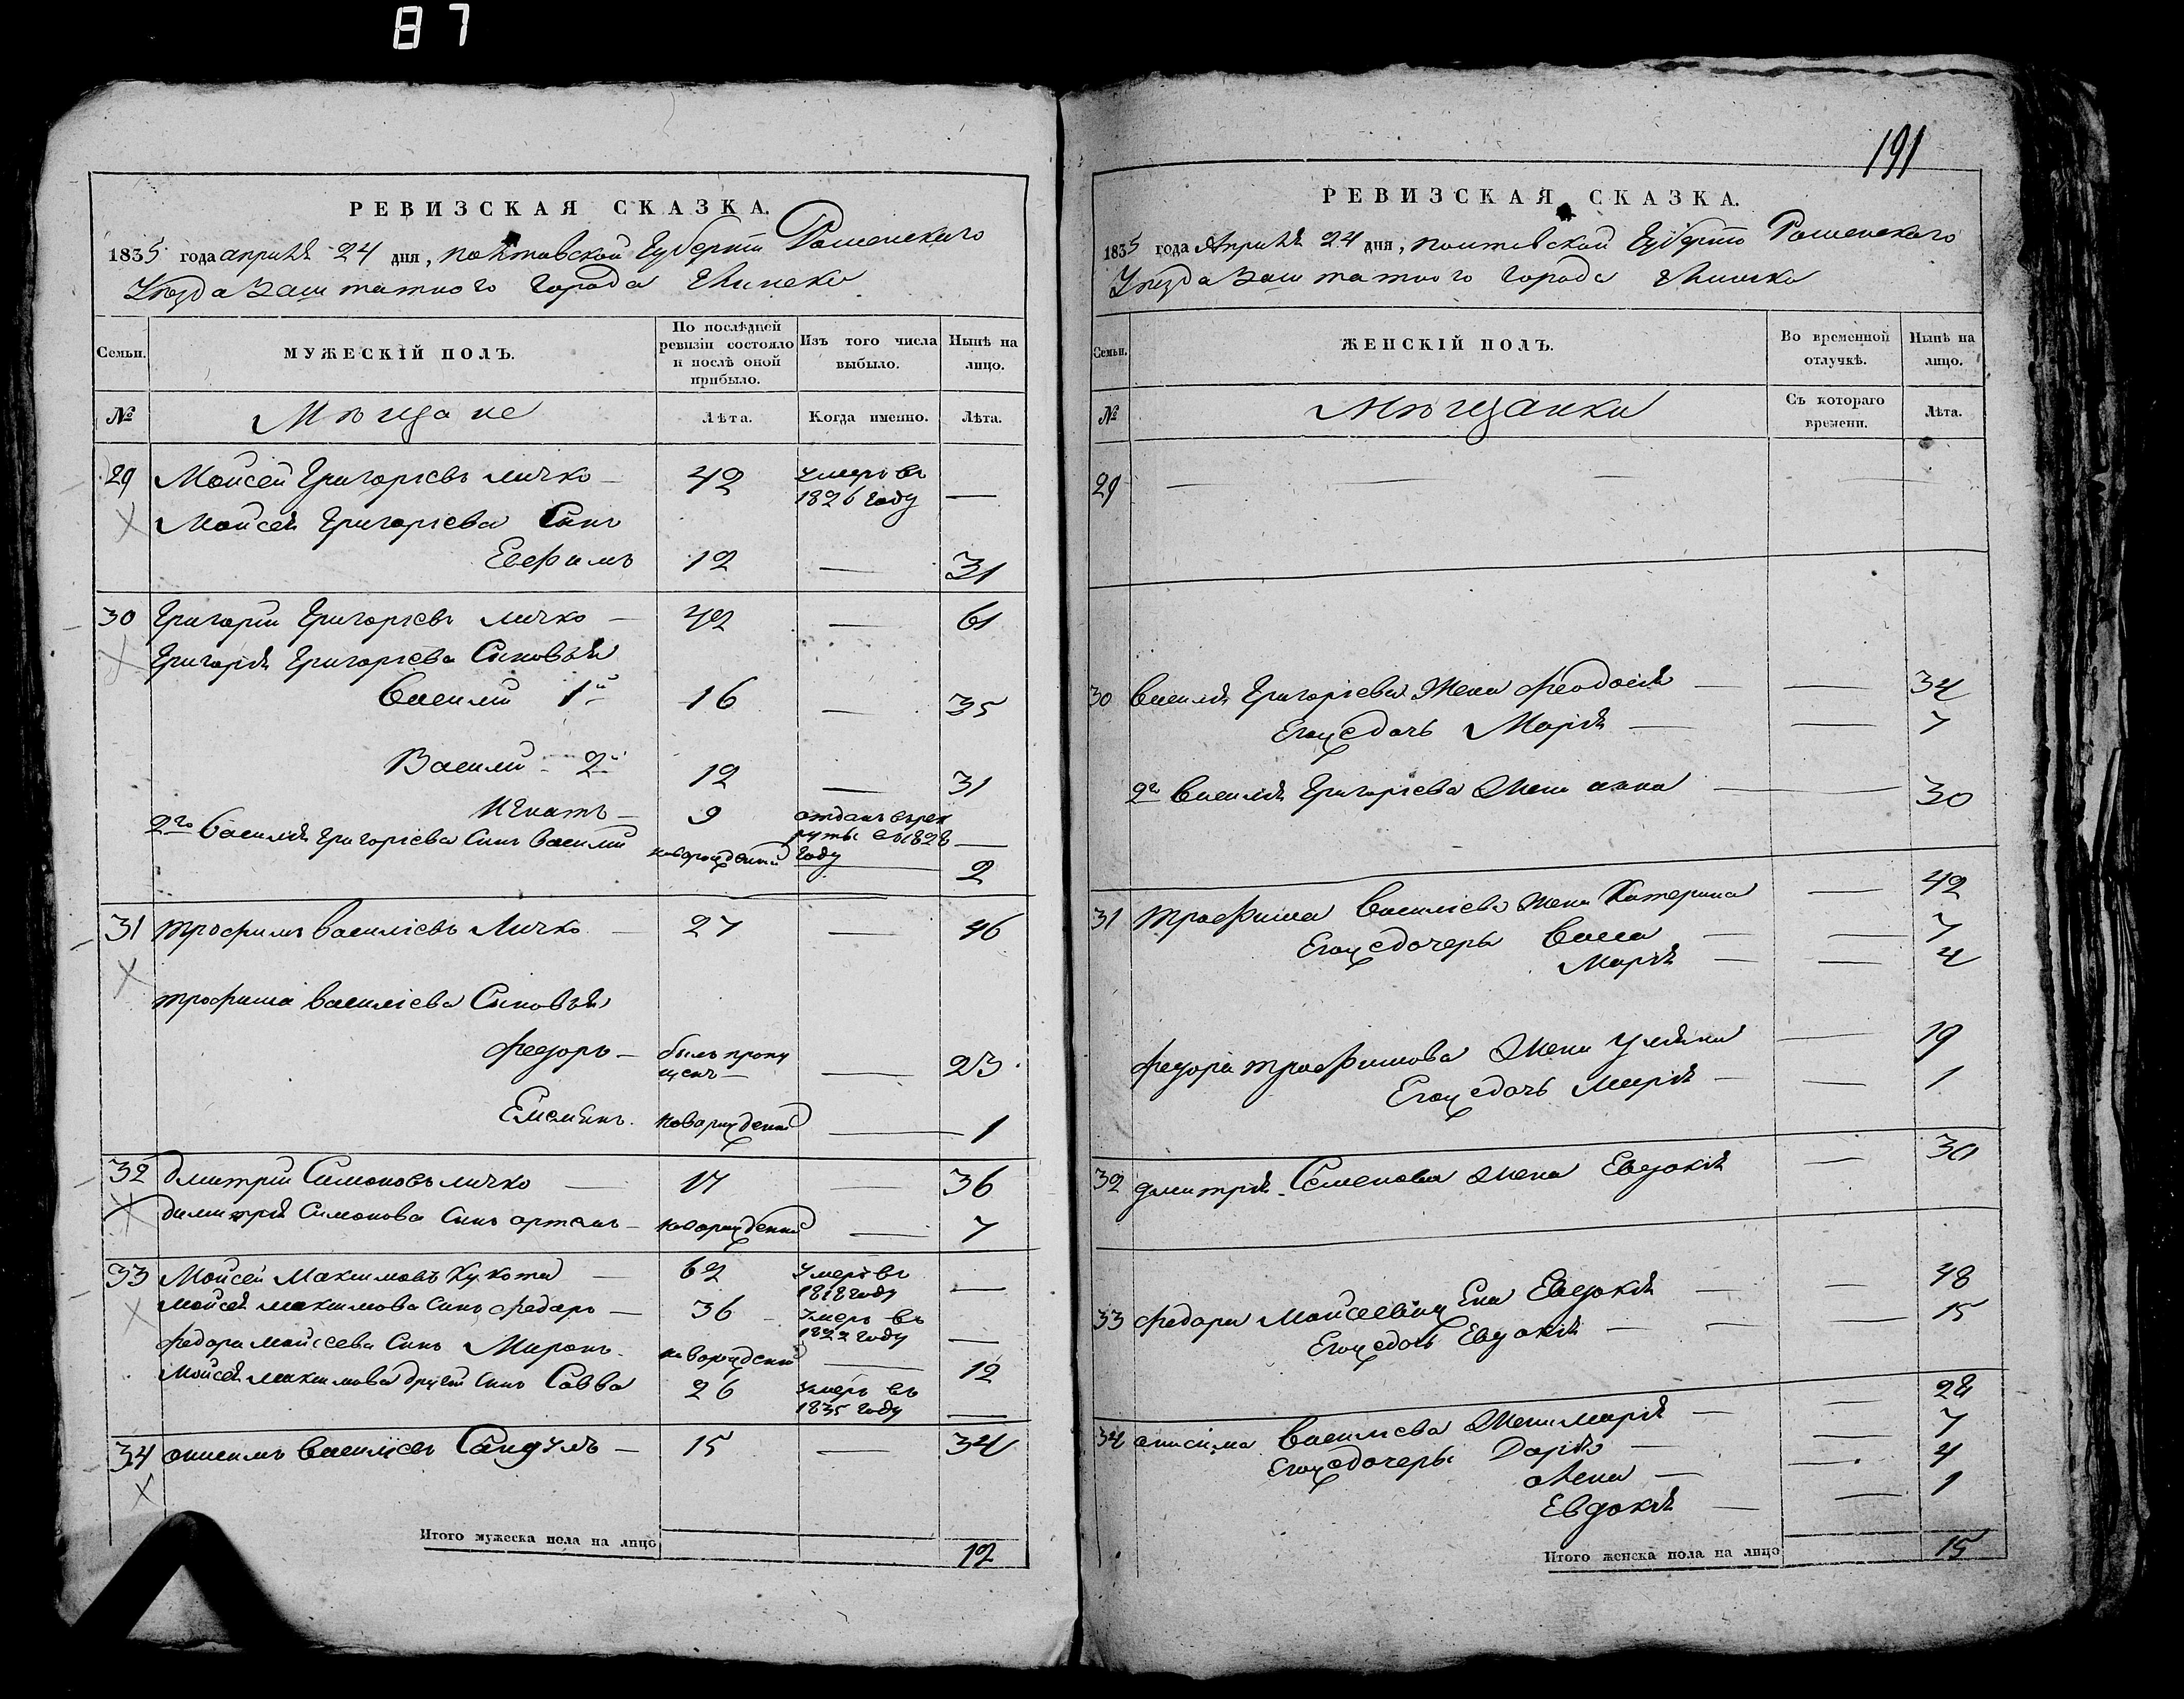 87
РЕВИЗСКАЯ СКАЗКА.
1835 года апрѣля 24 дня, полтавской Губернии Роменского
Уезда Заштатного города Глинска
Семьи.
МУЖЕСКІЙ ПОЛЪ.
По послѣдней ревизіи состояло и послѣ оной прибыло.
Изъ того числа выбыло.
Нынѣ на лицо.
№
Мѣщане
Лѣта.
Когда именно.
Лѣта.
29 Моисей Григориевъ Личко — 42 умеръ въ
1826 году —
Моисея Григориева Синъ
Евфимъ 12 — 31
30 Григорий Григориевъ Личко — 42 — 61
Григория Григориева Синовья
Василий 1й 16 — 35
Василий 2й 12 — 31
Игнатъ — 9 отданъ в рек
руты в 1828
году —
2го Василия Григориева Синъ Василий новорожденный — 2
31 Трофимъ Василиевъ Личко — 27 — 46
Трофима Василиева Синовья
Федоръ — былъ пропу
щенъ — — 23
Емелянъ новорожденный — 1
32 Дмитрий Симоновъ Личко — 17 — 36
Димитрия Симонова Синъ Артемъ — новорожденный — 7
33 Моисей Максимовъ Кукота — 62 умеръ въ
1818 году —
Моисея Максимова Синъ Федоръ — 36 умеръ въ
1822 году —
Федора Моисеева Синъ Миронъ новорожденный — 12
Моисея Максимова другой Синъ Савва 26 умеръ въ
1835 году —
34 Онисимъ Василиевъ Сандулъ — 15 — 34
Итого мужеска пола на лицо 12
191
РЕВИЗСКАЯ СКАЗКА.
1835 года Апрѣля 24 дня, полтавской Губернии Роменского
Уезда Заштатного города Глинска
Семьи.
ЖЕНСКІЙ ПОЛЪ.
Во временной отлучкѣ.
Нынѣ на лицо.
№
Мѣщанки
Съ котораго времени.
Лѣта.
29 — — — —
30 Василия Григориева Жена Феодосия — — 34
Егожедочь Мария — — 7
2го Василия Григориева Жена Анна — — 30
31 Трофима Василиева Жена Катерина — 42
Егожедочери Васса — — 7
Мария — — 4
Федора Трофимова Жена Улияна — 19
Егожедочь Мария — — 1
32 Дмитрия Семенова Жена Евдокия — 30
33 Федора Моисеева Жена Евдокия — — 48
Егожедочь Евдокия — — — 15
34 Онисима Василиева Жена Мария — — 28
Егожедочери Дария — — 7
Елена — — 4
Евдокия — — 1
Итого женска пола на лицо 15